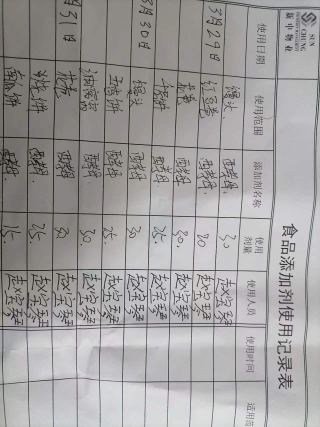 SUN
CHUNG
新中物业
食品添加剂使用记录表
使用日期 使用范围 添加剂名称 使用剂量 使用人员 使用时间
3月29日 馒头 酵母 30 赵宝琴
酵母 20 赵宝琴
花卷 酵母 30 赵宝琴
酵母 25 赵宝琴
3月30日 馒头 酵母 30 赵宝琴
酵母 25 赵宝琴
酵母 30 赵宝琴
月31日 花卷 酵母 30 赵宝琴
酵母 25 赵宝琴
南瓜饼 酵母 15 赵宝琴